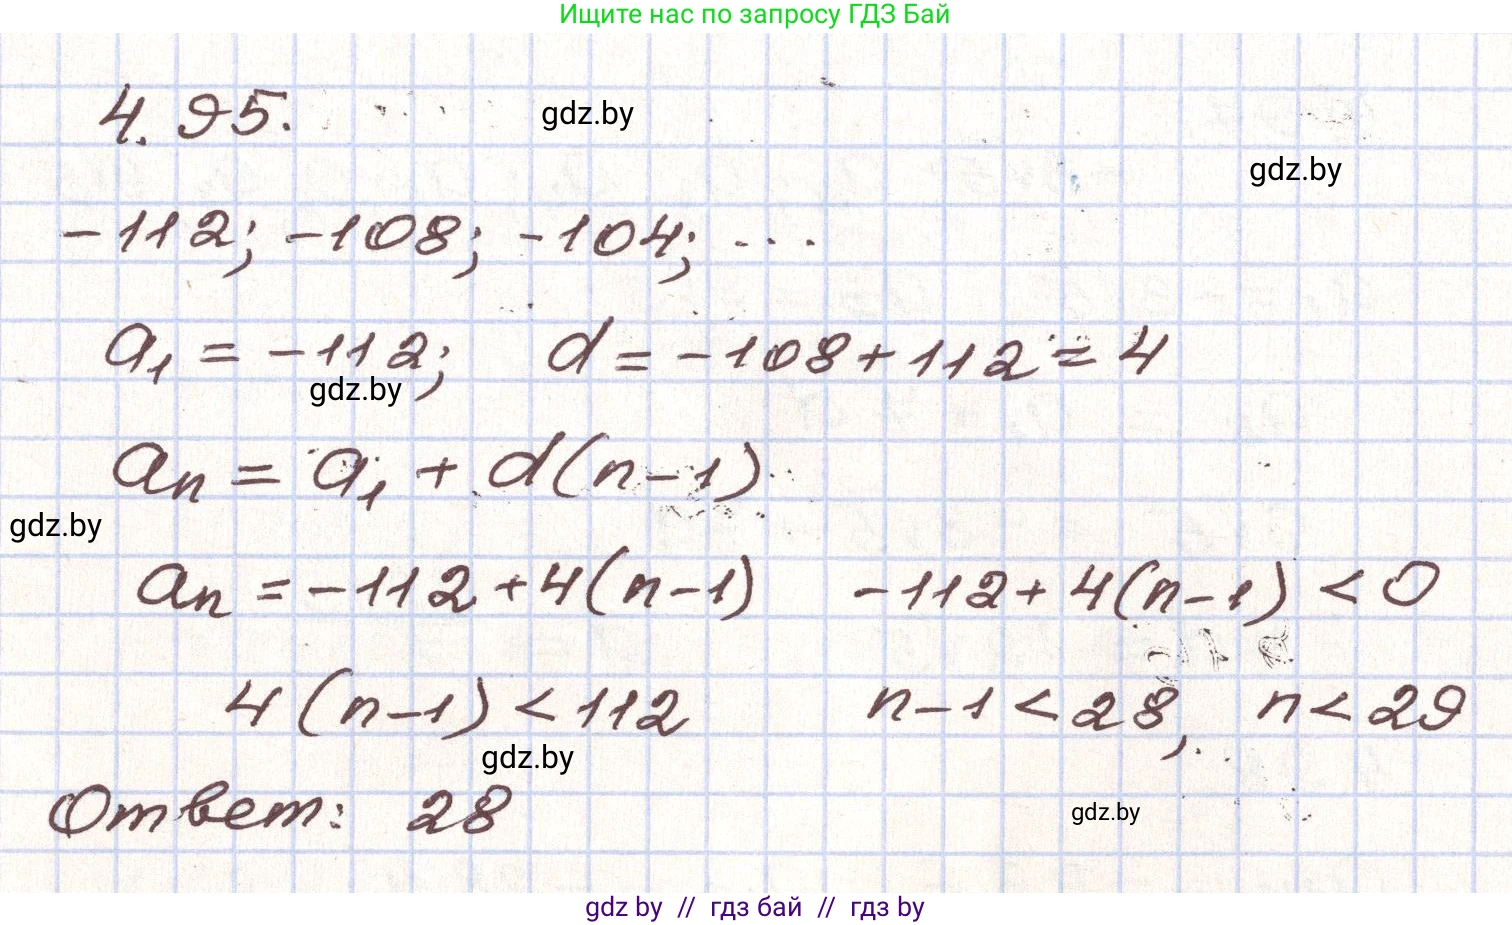 Ищите нас по запросу ГДЗ Бай
4.95.
gdz.by
gdz.by
-112; -108; -104; ...
a₁ = -112; d = -108 + 112 = 4
gdz.by
aₙ = a₁ + d(n-1)
gdz.by
aₙ = -112 + 4(n-1) -112 + 4(n-1) < 0
4(n-1) < 112 n-1 < 28, n < 29
gdz.by
Ответ: 28
gdz.by
gdz by // гдз бай // гдз by